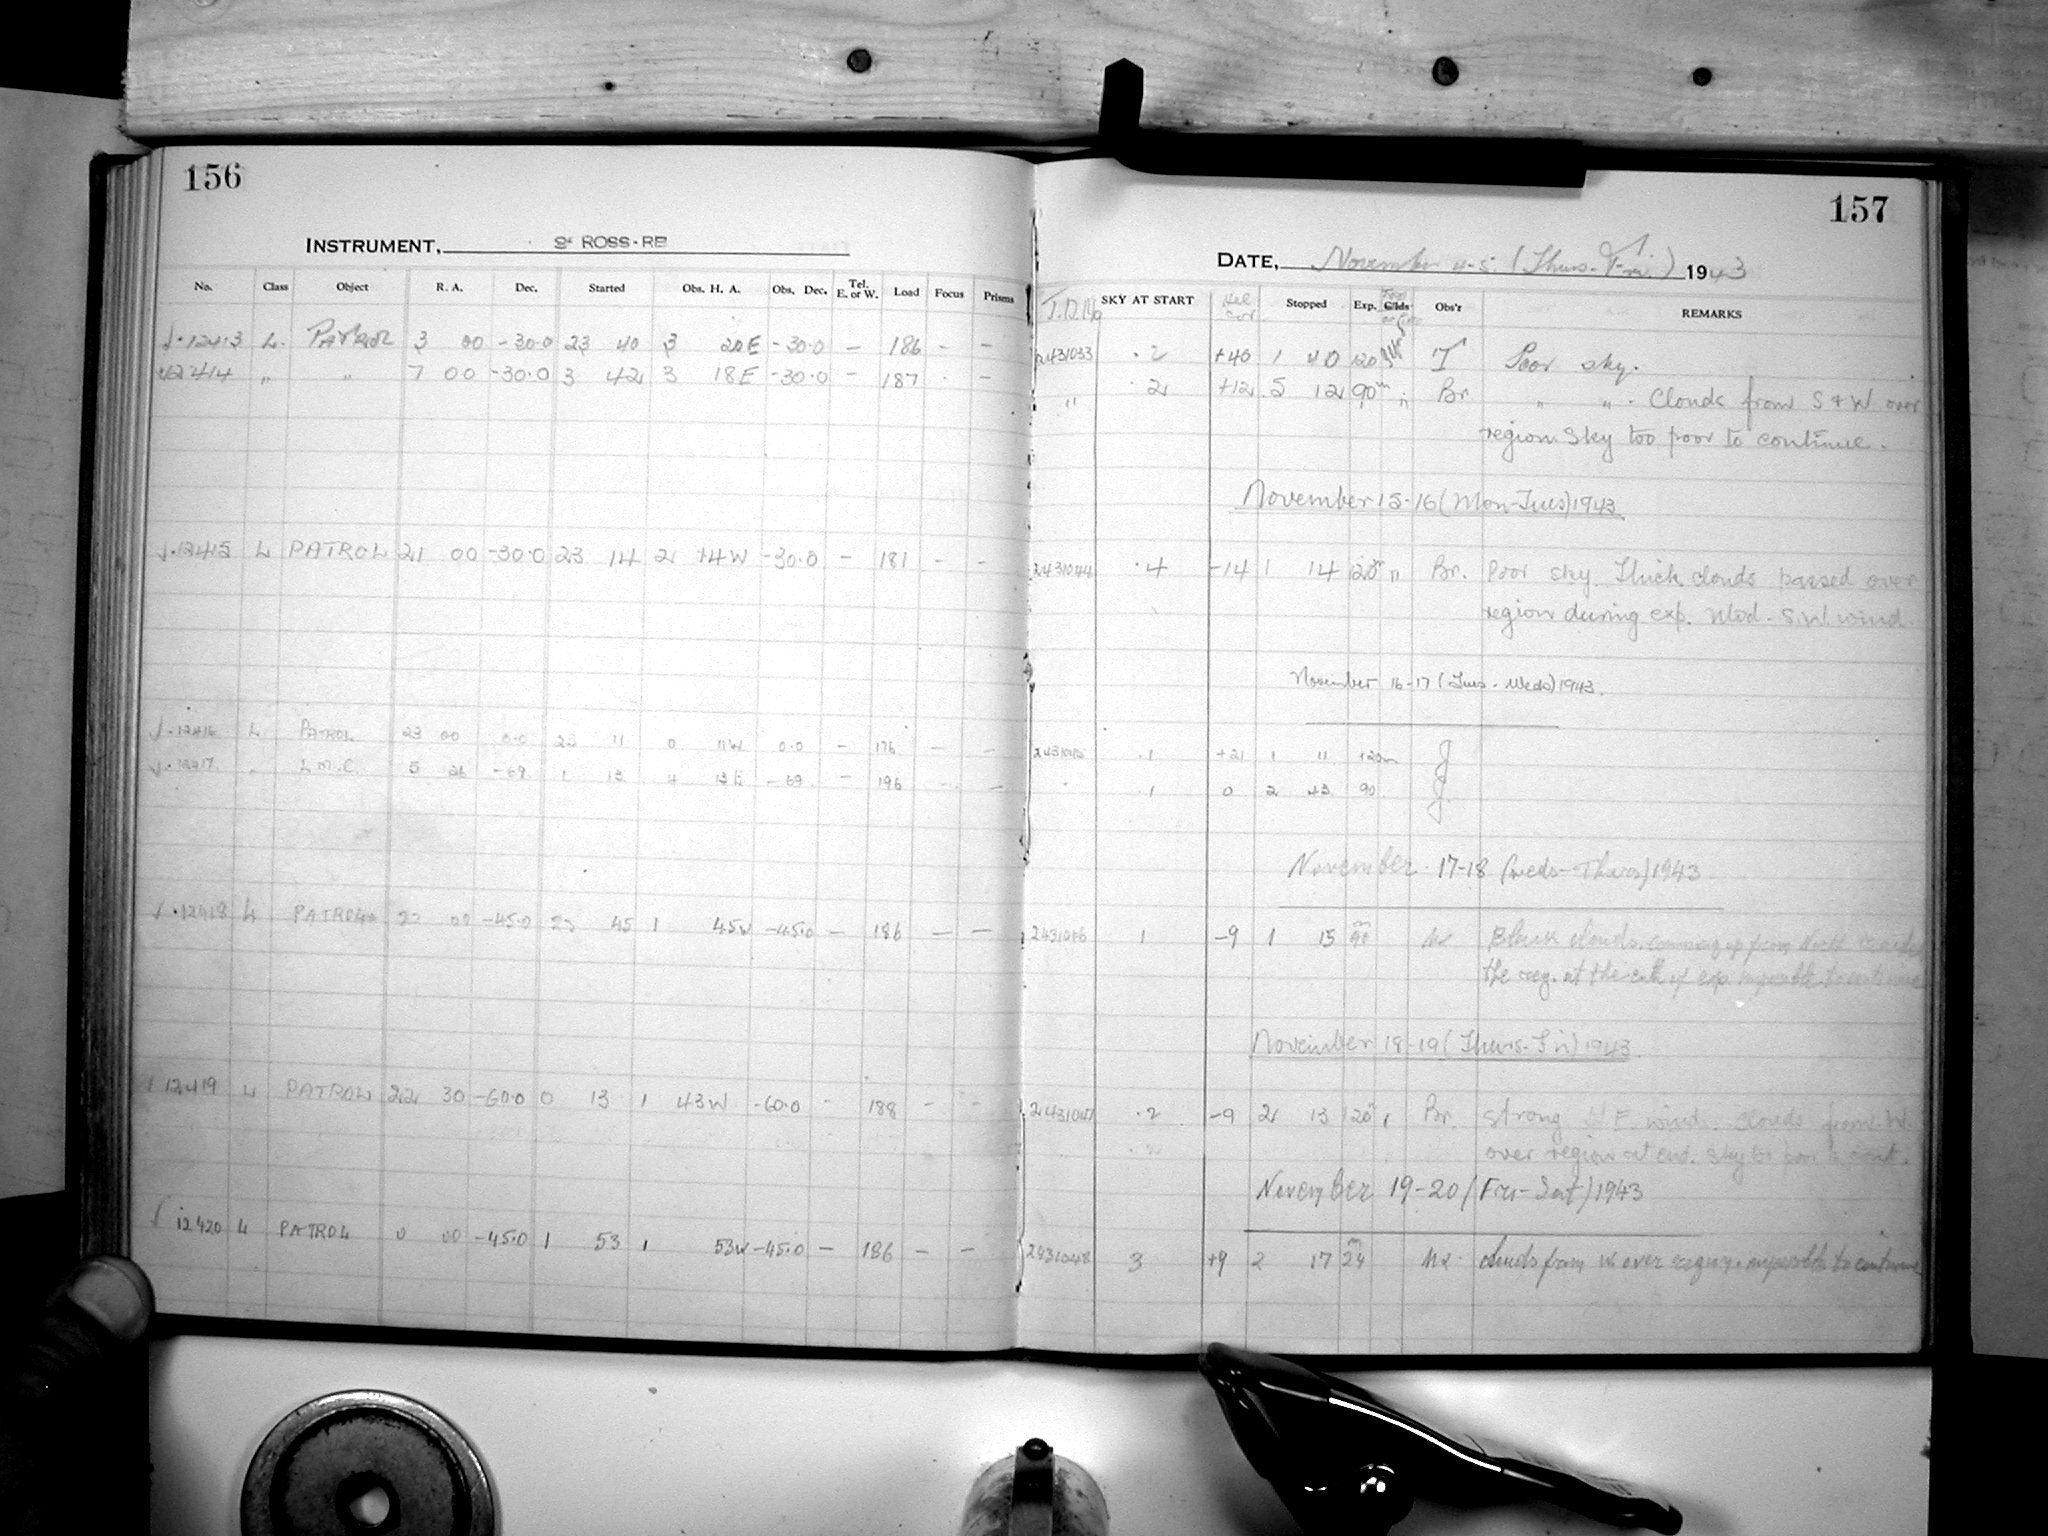 156
INSTRUMENT, ROSS-RB
No. Class Object R. A. Dec. Started Obs. H. A. Obs. Dec. Tel. E. or W. Load Focus Prisms
12413 L. PATROL 3 00 -30.0 23 40 3 20E -30.0 - 186 - -
12414 " " 7 00 -30.0 3 42 3 18E -30.0 - 187 - -
12415 L PATROL 21 00 -30.0 23 14 2 14W -30.0 - 181 - -
12416 L PATROL 23 00 0.0 23 11 0 11W 0.0 - 176 - -
12417 " L.M.C. 5 26 -69 1 13 4 13E -69 - 196 - -
12418 L PATROL 22 00 -45.0 23 45 1 45W -45.0 - 186 - -
12419 L PATROL 22 30 -60.0 0 13 1 43W -60.0 - 188 - -
12420 L PATROL 0 00 -45.0 1 53 1 53W -45.0 - 186 - -
157
DATE, November 4-5 (Thurs-Fri) 1943
J.D. No SKY AT START Stopped Exp. Obs'r REMARKS
2431033 .2 +40 1 40 120 J Poor sky.
" .2 +12 5 12 90m " Br " " . Clouds from S & W over
region. Sky too poor to continue.
November 15-16 (Mon-Tues) 1943
2431044 .4 -14 1 14 120m " Br. Poor sky. Thick clouds passed over
region during exp. Mod. S.W. wind.
November 16-17 (Tues-Weds) 1943.
2431045 .1 +21 1 11 120m J
" .1 0 2 43 90 J.
November 17-18 (Weds-Thurs) 1943
2431046 1 -9 1 15 90m Black clouds coming up from North
the reg. at the end of exp. impossible to continue
November 18-19 (Thurs-Fri) 1943
2431047 .2 -9 2 13 120m Br. Strong E. wind. Clouds from W.
over region at end. Sky too poor to cont.
November 19-20 (Fri-Sat) 1943
2431048 3 +9 2 17 24m clouds from W over region. impossible to continue